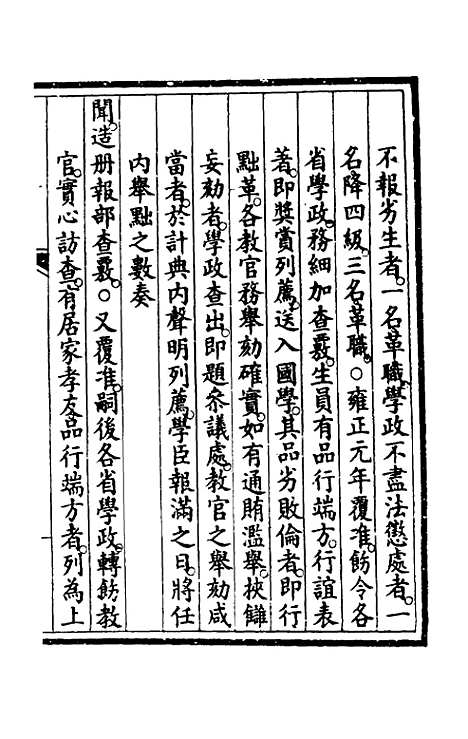 不報劣生者。一名革職。學政不盡法懲處者。一
名降四級。三名革職。○雍正元年覆准。飭令各
省學政。務細加查覈。生員有品行端方。行誼表
著。即獎賞列薦。送入國學。其品劣敗倫者。即行
黜革。各教官務舉劾確實。如有通賄濫舉。挾讎
妄劾者。學政查出。即題參議處。教官之舉劾咸
當者。於計典內聲明列薦。學臣報滿之日。將任
內舉黜之數奏
聞。造册報部查覈。○又覆准。嗣後各省學政。轉飭教
官。實心訪查。有居家孝友。品行端方者。列為上